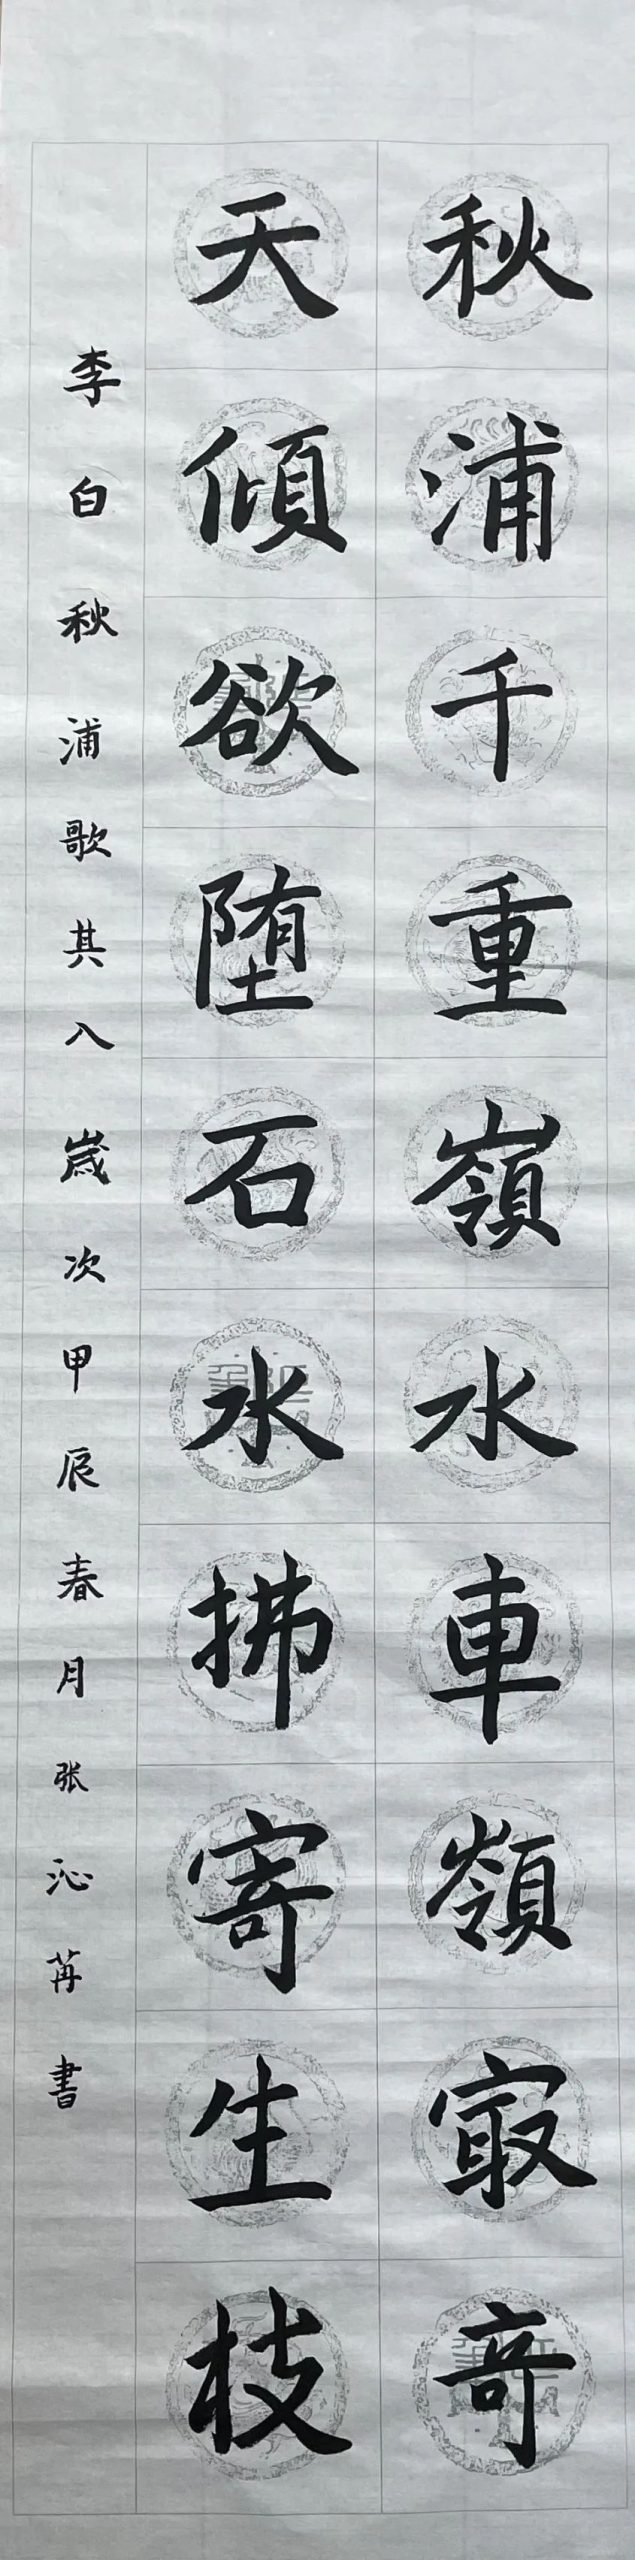 秋浦千重嶺水車嶺㝡竒
天傾欲堕石水拂寄生枝
李白秋浦歌其八歲次甲辰春月张沁苒書